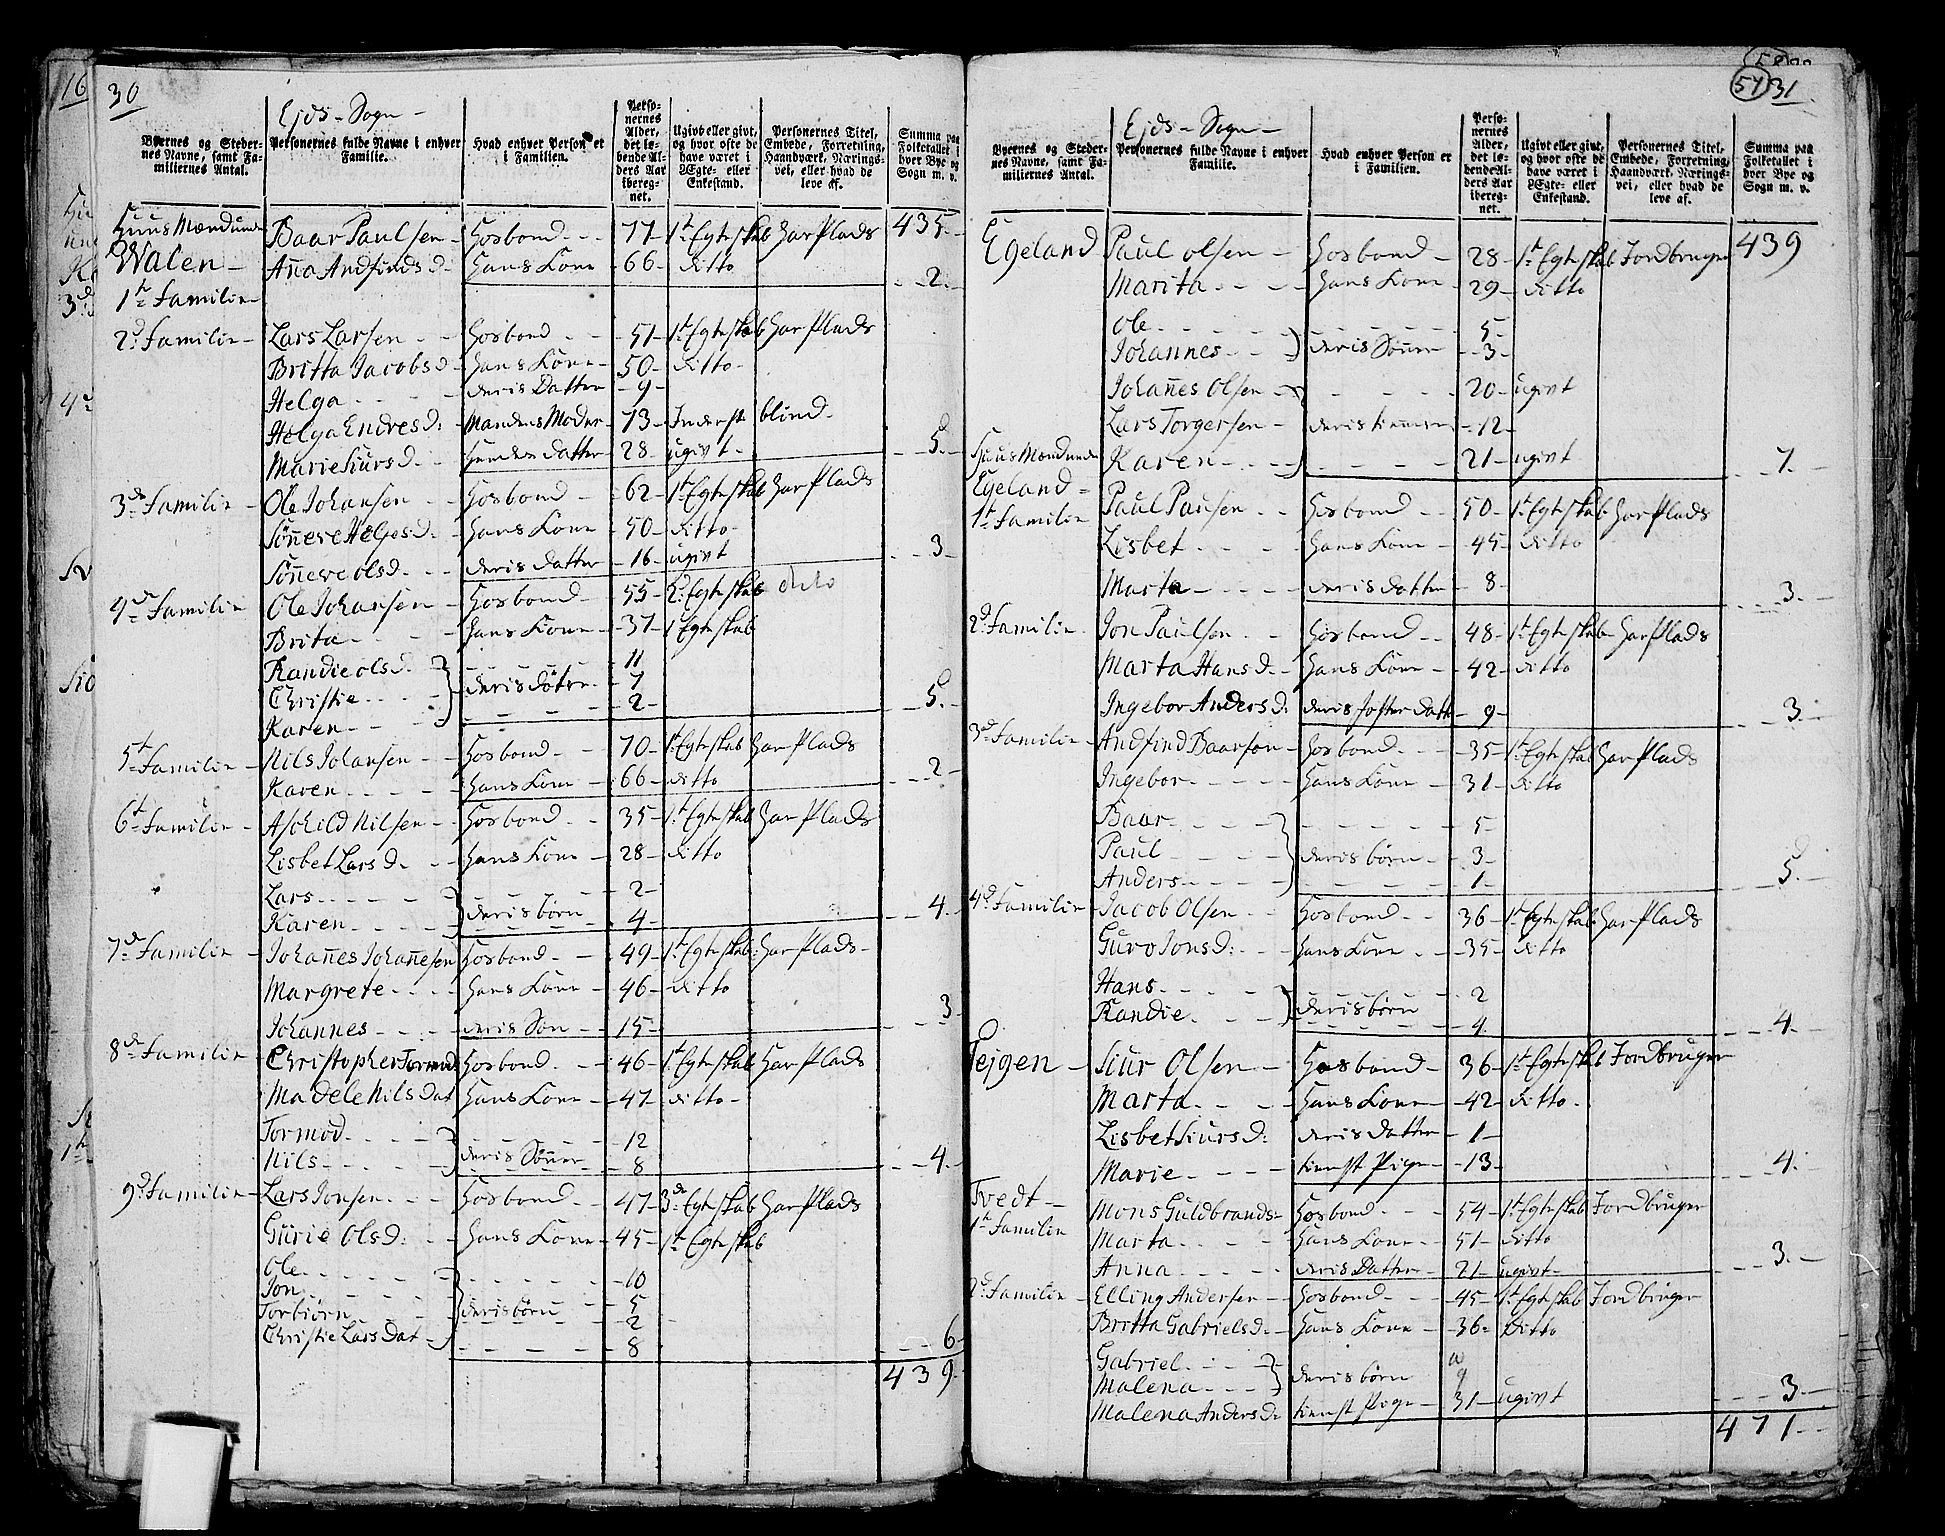 16
30
Ejds - Sogn -
Byernes og Steder-
nes Navne, samt Fa-
miliernes Antal.
Personernes fulde Navne i enhver
Familie.
Hvad enhver Person er
i Familien.
Perso-
nernes
Alder,
det le-
bende Al-
ders Aar
ibereg-
net.
Ugivt eller givt,
og hvor ofte de
have været i
Ægte- eller
Enkestand.
Personernes Titel,
Embede, Forretning,
Haandværk, Nærings-
vei, eller hvad de
leve af.
Summa paa
Folketallet i
hver Bye og
Sogn m. v.
Huus Mænd und
Walen -
1t Familie
Baar Paulsen - Hosbond - - 77 - 1t Egteskab har Plads 435 -
Aña Andfinds d - hans Kone - 66 - ditto - - 2 -
2d Familie - Lars Larsen - Hosbond - - 51 - 1t Egteskab har Plads
Britta Jacobs d - hans Kone - 50 - ditto -
Helga - - - deris Datter - 9 -
Helga Endres d: - Mandens Moder - 73 - Inderst blind -
Marie Siurs d - - hendes datter - 28 - ugivt - - - 5 -
3de Familie - Ole Johansen - - Hosbond - - 62 - 1t Egteskab har Plads
Söñeve Helges d - hans Kone - 50 - ditto -
Söñeve ols d - - deris datter - 16 - ugivt - - 3 -
4de Familie Ole Johansen - Hosbond - 55 - 2t Egteskab dito
Brita - - - hans Kone - 37 - 1 Egteskab
Randie ols d - - - 11
Christie - - - deris döttre - 7
Karen - - - - 2 - - - 5 -
5t Familie - Nils Johansen - - Hosbond - - 70 - 1t Egteskab har Plads
Karen - - - - hans Kone - 66 - ditto - - 2 -
6t Familie - Aschild Nilsen - - Hosbond - - 35 - 1t Egteskab har Plads
Lisbet Lars d - - hans Kone - 28 - ditto
Lars - - - - - 2 -
Karen - - - deris börn - 4 - - - 4 -
7de Familie - Johañes Johañesen Hosbond - - 49 - 1t Egteskab har Plads -
Margrete - - - hans Kone - 46 - ditto
Johannes - - - deris Sön - 15 - - - 3 -
8de Familie - Christopher Tormod Hosbond - - 46 - 1t Egteskab har Plads
Madele Nils dat hans Kone - 47 - ditto -
Tormod - - - - 12
Nils - - - - deris Sönner - 8 - - 4 -
9de Familie - Lars Jonsen - - Hosbond - - 47 - 3de Egteskab har Plads
Gurie Ols d: - hans Kone - 45 - 1t Egteskab
Ole - - - - - 10
Jon - - - - 5
Torbiörn - - deris börn - 2 -
Christie Lars Dat - - - 8 - - - 6 -
439 -
54 31
Ejds - Sogn -
Byernes og Steder-
nes Navne, samt Fa-
miliernes Antal.
Personernes fulde Navne i enhver
Familie.
Hvad enhver Person er
i Familien.
Perso-
nernes
Alder,
det le-
bende Al-
ders Aar
ibereg-
net.
Ugivt eller givt,
og hvor ofte de
have været i
Ægte- eller
Enkestand.
Personernes Titel,
Embede, Forretning,
Haandværk, Nærings-
vei, eller hvad de
leve af.
Summa paa
Folketallet i
hver Bye og
Sogn m. v.
Egeland Paul olsen - Hosbond - 28 - 1t Egteskab Jordbruger 439
Marita - - - - hans Kone - 29 - ditto
Ole - - - - - 5 -
Johannes - - deris Sönner - 3 -
Johañes Olsen - - - - 20 - ugivt
Lars Torgersen - deris - 12 -
Karen - - - - - 21 - ugivt - - 7 -
Huus Mænd und
Egeland =
1t Familie Paul Paulsen - - Hosbond - 50 - 1t Egteskab har Plads
Lisbet - - - hans Kone - 45 - ditto
Marta - - - - deris datter - 8 - - - - 3 -
2d Familie - Jon Paulsen - - Hosbond - - 48 - 1t Egteskab har Plads
Marta Hans d - hans Kone - 42 - ditto
Ingebor Anders d: deris foster Datt - 9 - - - 3 -
3d Familie - Andfind Baarson - Hosbond - - - 35 - 1t Egteskab har Plads
Ingebor - - - hans Kone - 31 - ditto
Baar - - - - - 5 -
Paul - - - - deris börn - 3 -
Anders - - - - 1 - - - - 5 -
4de Familie - Jacob Olsen - - Hosbond - - 36 - 1t Egteskab har Plads
Guro Jons d: - - hans Kone - - 35 - ditto
Hans - - - - - 2
Randie - - - deris börn - 4 - - - 4 -
Tejgen - Siur Olsen - - Hosbond - 36 - 1t Egteskab Jordbruger
Marta - - - hans Kone - 42 - ditto -
Lisbet Siurs d: deris datter - 1 -
Marie - - - tienst Pige - 13 - - - 4 -
Tvedt -
1t Familie Mons Guldbrands: Hosbond - - - 54 - 1t Egteskab Jordbruger
Marta - - - hans Kone - 51 - ditto
Anna - - - - deris Datter - 21 - ugivt - - - - 3 -
2de Familie - Elling Andersen - Hosbond - - 45 - 1t Egteskab Jordbruger
Britta Gabriels d - hans Kone - 36 - ditto
Gabriel - - -
Malena - - - deris börn 9
Malena Anders d - tienst Pige - 31 - ugivt - - - 3 -
471 - -